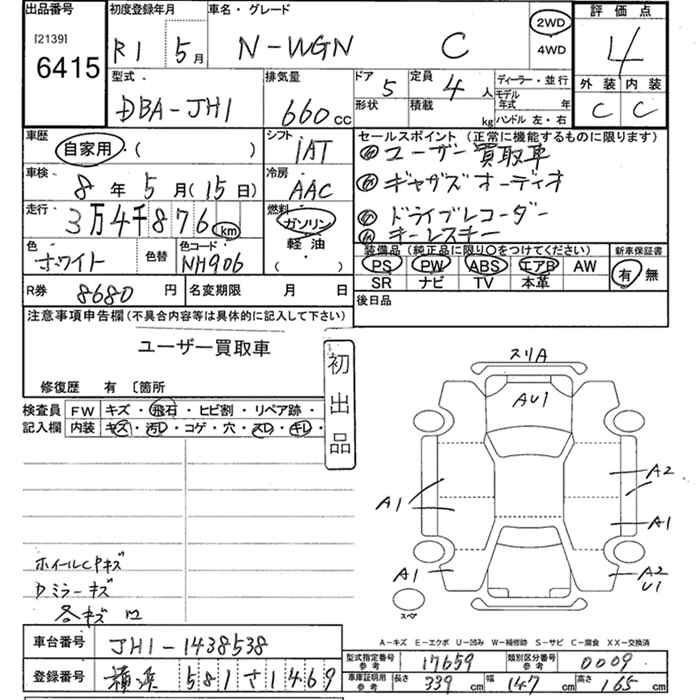 出品番号 初度登録年月 車名・グレード 評価点
[2139] 6415 R1 5月 N-WGN C 2WD 4WD 4
外装 内装
C C
型式 排気量 ドア 定員 ディーラー・並行
DBA-JH1 660cc 5 4人 モデル年式 年
形状 積載 kg ハンドル 左・右
車歴 シフト セールスポイント(正常に機能するものに限ります)
自家用・( ) IAT ユーザー買取車
車検 冷房 ギャザズオーディオ
8年5月(15日) AAC ドライブレコーダー
走行 燃料 キーレスキー
3万4千876km ガソリン
軽油
( )
色 色替 色コード 装備品(純正品に限り○をつけてください) 新車保証書
ホワイト NH906 PS PW ABS エアB AW 有 無
SR ナビ TV 本革
R券 8680円 名変期限 月 日 後日品
注意事項申告欄(不具合内容等は具体的に記入して下さい)
ユーザー買取車
修復歴 有 〔箇所
初出品
検査員 FW キズ・飛石・ヒビ割・リペア跡・
記入欄 内装 キズ・汚レ・コゲ・穴・スレ・キレ・
スリA
AU1
A2
A1
A1
A1
A2
U1
スペ
ホイールCPキズ
Dミラーキズ
各キズ凹
A-キズ E-エクボ U-凹み W-補修跡 S-サビ C-腐食 XX-交換済
車台番号 JH1-1438538
型式指定番号 参考 17659 類別区分番号 参考 0009
登録番号 横浜 581 さ 1469
車庫証明用 参考 長さ 339cm 幅 147cm 高さ 165cm